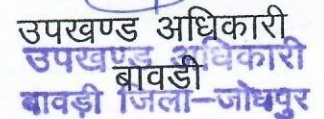 उपखण्ड अधिकारी
उपखण्ड अधिकारी
बावडी
बावड़ी जिला-जोधपुर